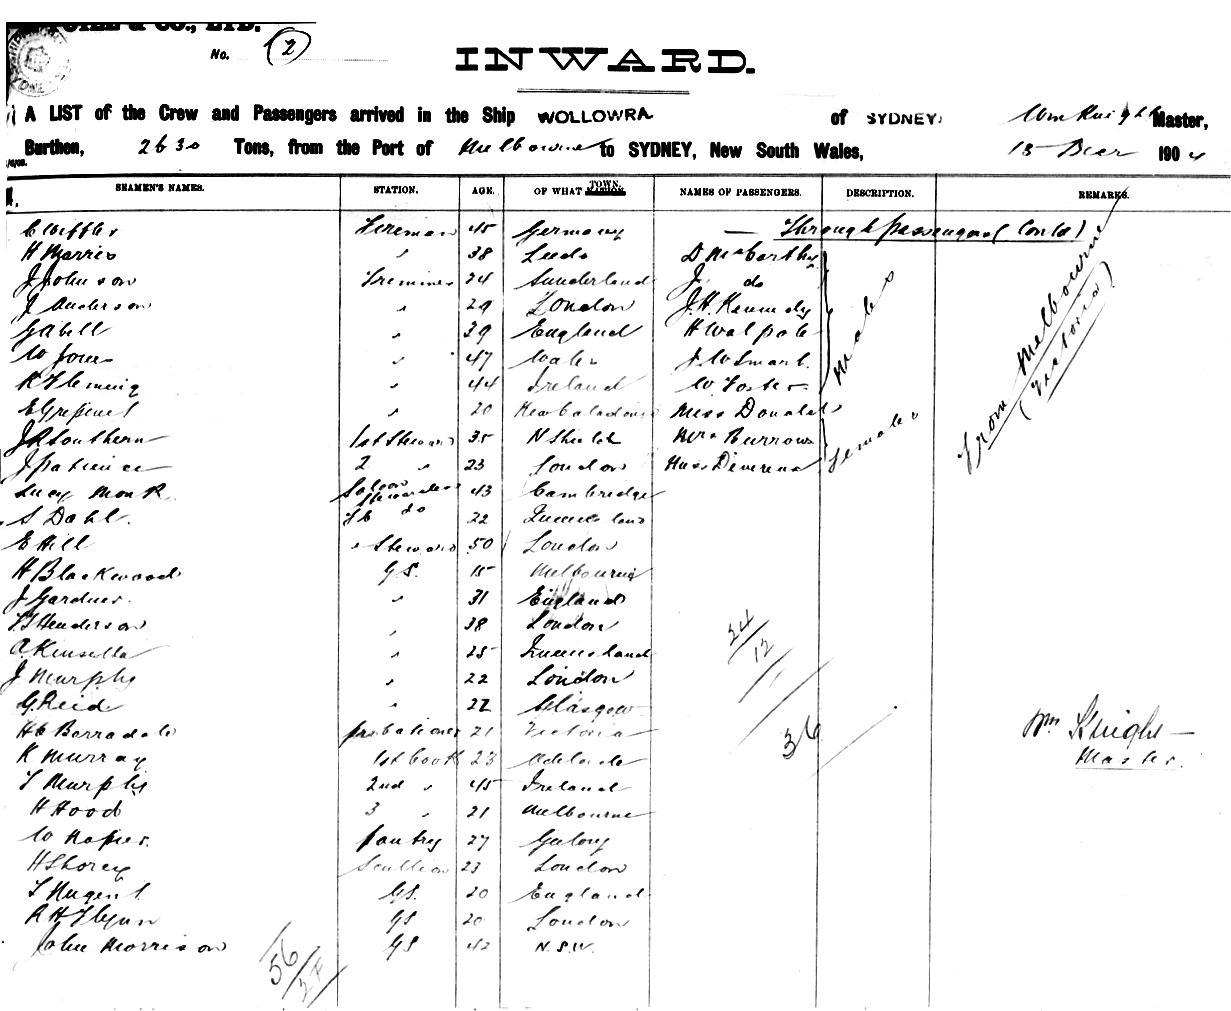 & CO., LTD.
No. (2)
INWARD.
A LIST of the Crew and Passengers arrived in the Ship WOLLOWRA of SYDNEY, Wm Knight Master,
Burthen, 2630 Tons, from the Port of Melbourne to SYDNEY, New South Wales, 15 Decr 1904
SEAMEN'S NAMES. STATION. AGE. OF WHAT TOWN. NATION. NAMES OF PASSENGERS. DESCRIPTION. REMARKS.
Fireman 45 Germany — Through Passengers (Contd)
H Harris " 38 Leeds D McCarthy
J Johnson Trimmer 24 Sunderland J. do
J Anderson " 29 London J.H. Kennedy
G Abell " 39 England H Walpole
W Jones " 47 Wales J W Smart
R Fleming " 44 Ireland W Foster
E " 20 New Caledonia Miss Donald
Males
J R Southern 1st Steward 35 N Shields Mrs Burrows
J Patience 2 " 23 London Miss
Females
From Melbourne
(Victoria)
Lucy Monk Saloon Stewardess 43 Cambridge
S Dahl. do 22 Queensland
E Hill " Steward 50 London
H Blackwood G.S. 15 Melbourne
J Gardner. " 31 England
Henderson " 38 London
A Kinsella " 25 Queensland
J Murphy " 22 London
G. Reid " 22 Glasgow
24
12
36
H C Barradale probationer 21 Victoria
Wm Knight
Master.
K Murray 1st Cook 23 Adelaide
T Murphy 2nd " 45 Ireland
H Hood 3 " 21 Melbourne
W Napier. Pantry 27 Geelong
H Storey Scullion 23 London
T Nugent GS. 20 England
R H Flynn GS 20 London
John Morrison GS 42 N.S.W.
56